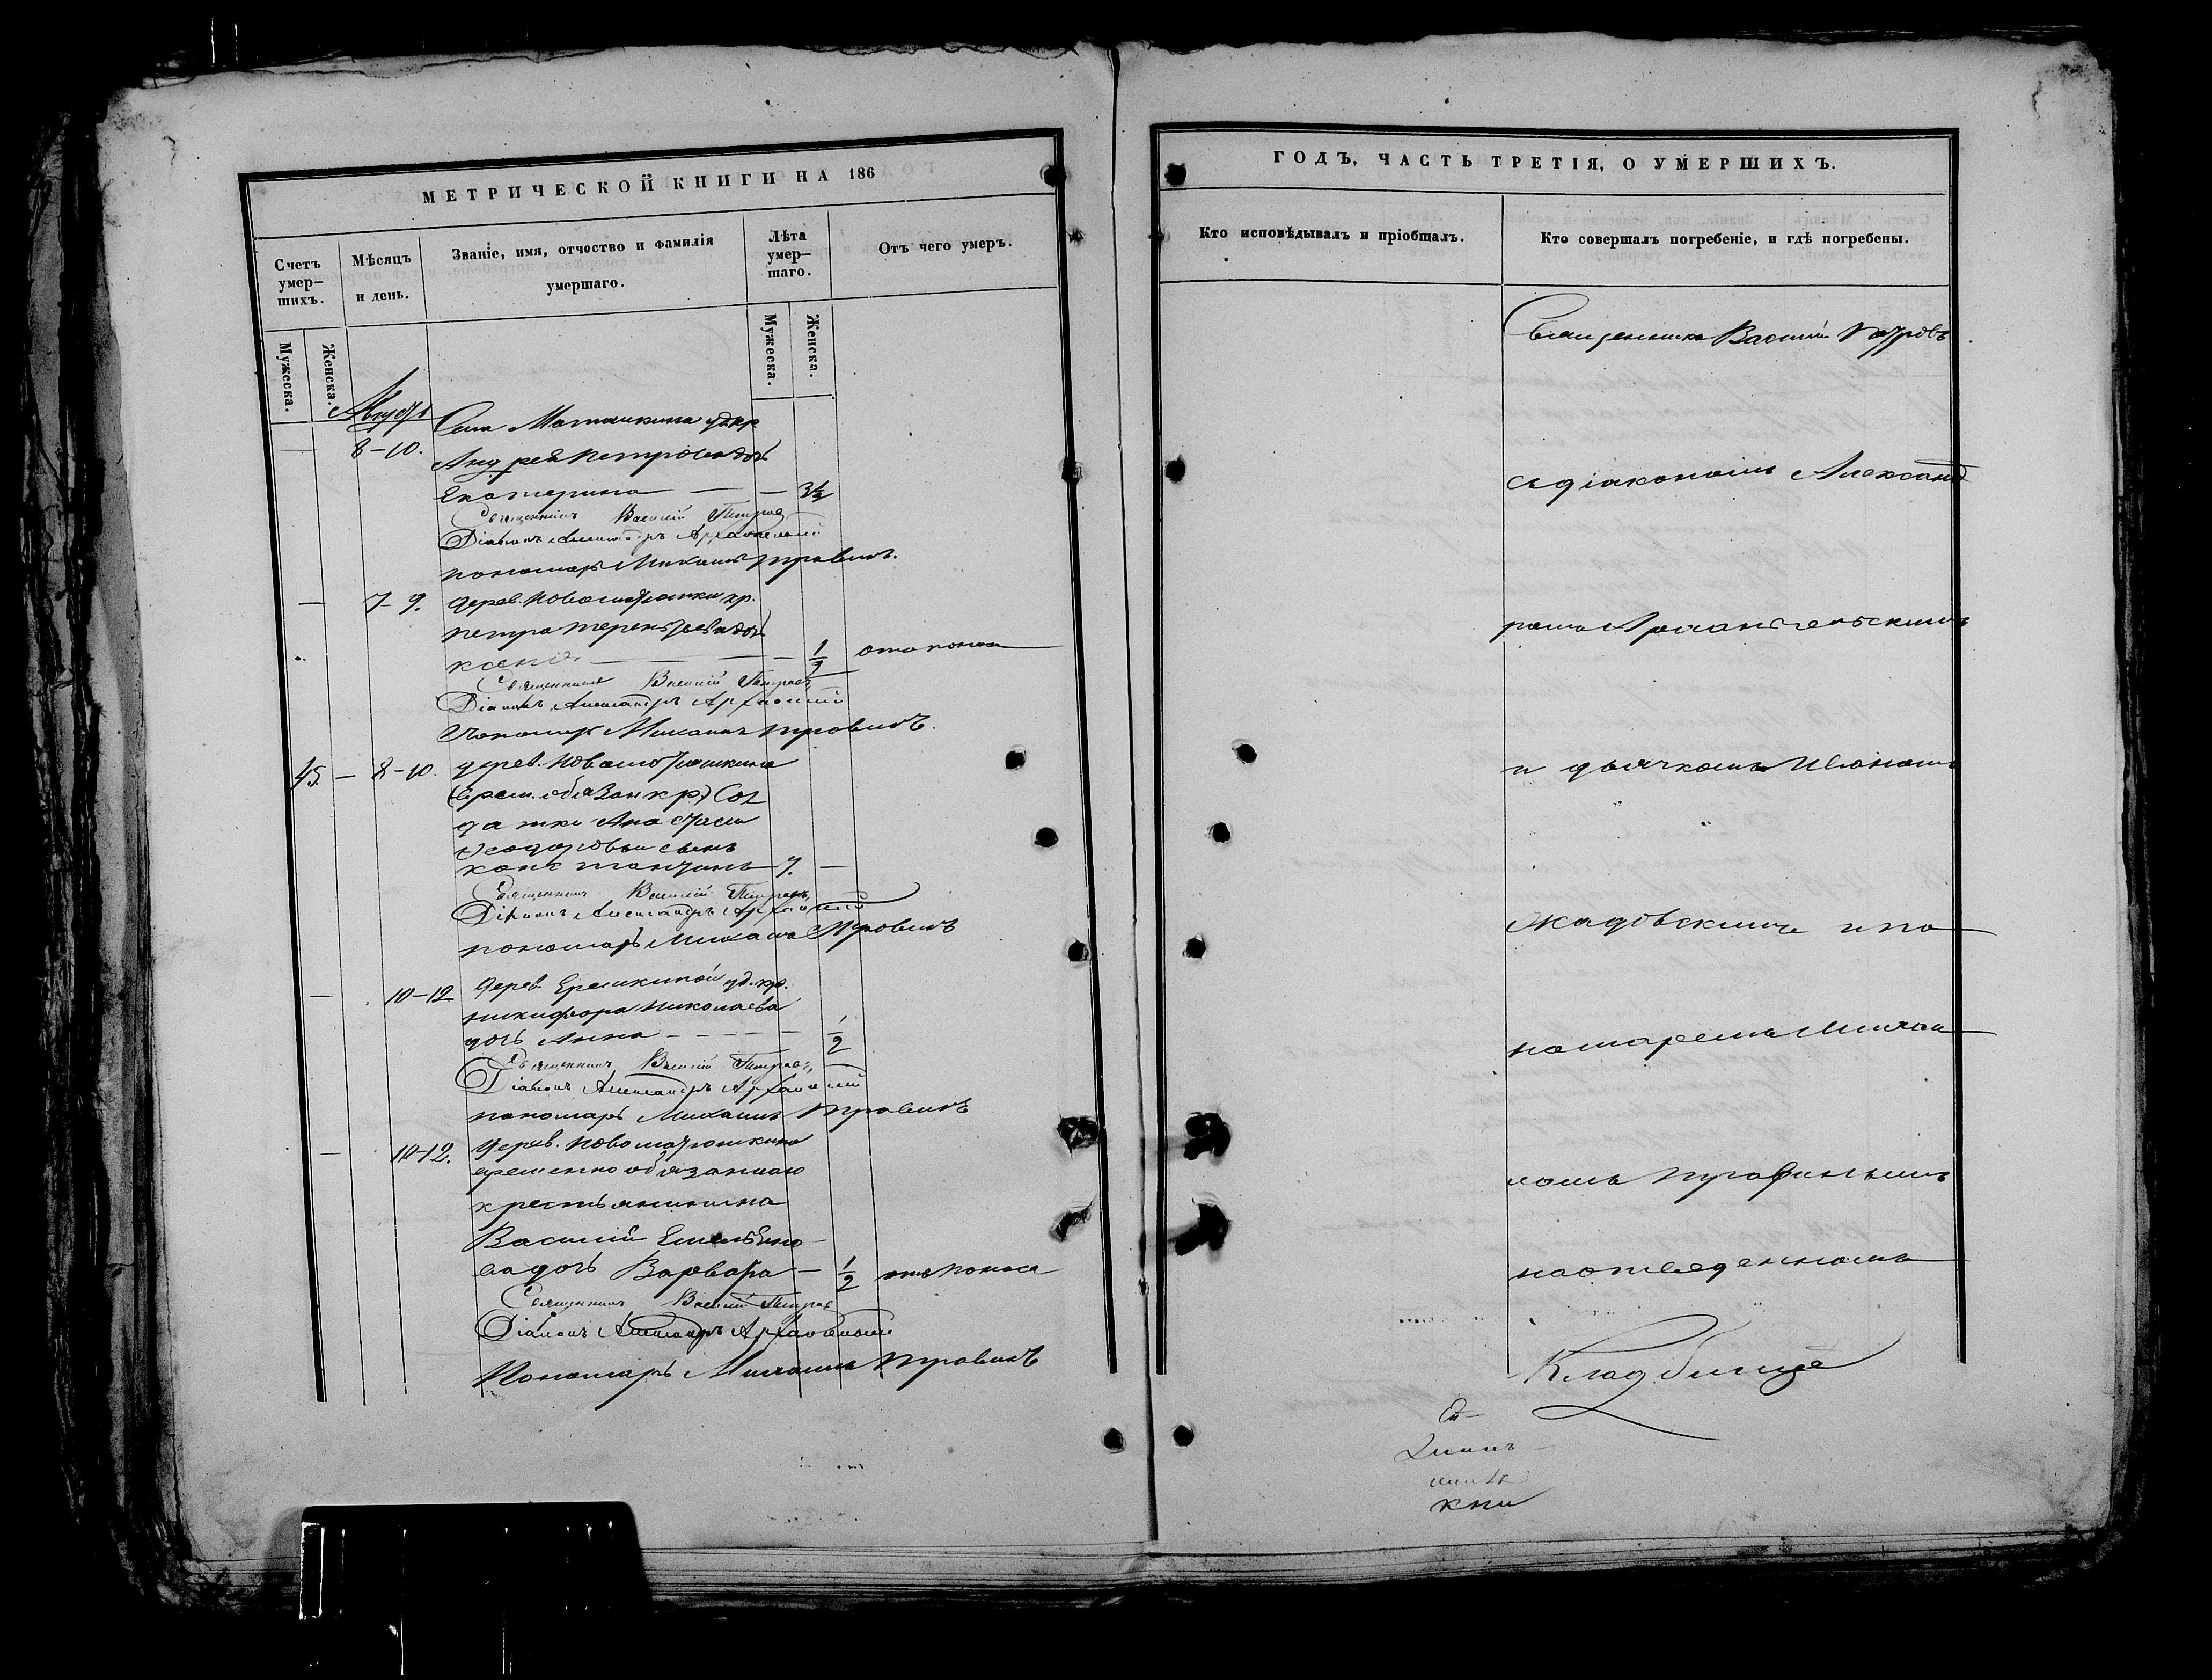 МЕТРИЧЕСКОЙ КНИГИ НА 186
Счетъ умер-шихъ.
Мѣсяцъ и день.
Званіе, имя, отчество и фамилія умершаго.
Лѣта умер-шаго.
Отъ чего умеръ.
Мужеска.
Женска.
Мужеска.
Женска.
Августъ
8-10.
Села Матюшкина уд кр
Андрея Петрова дочь
Екатерина — — 3½
Священникъ Василій Петровъ
Діаконъ Александръ Архангельскій
пономарь Михаилъ Травинъ.
— 7-9. дерев. Новоматюшкин кр.
Петра Терентьева дочь
— ½ отъ поноса
Священникъ Василій Петровъ
Діаконъ Александръ Архангельскій
Пономарь Михаилъ Травинъ.
45 — 8-10. дерев. Новоматюшкина
(врем. обязан кр) Сол
датки Анастасіи
Ѳеодоровой сынъ
Константинъ — —
Священникъ Василій Петровъ
Діаконъ Александръ Архангельскій
пономарь Михаилъ Травинъ
— 10-12 дерев. Ерешкиной уд. кр.
Никифора Николаева
дочь Анна — ½
Священникъ Василій Петровъ
Діаконъ Александръ Архангельскій
пономарь Михаилъ Травинъ
— 10-12. дерев. Новоматюшкина
временно обязаннаго
крестьянина
Василій Емельяно
ва дочь Варвара — ½ отъ поноса
Священникъ Василій Петровъ
Діаконъ Александръ Архангельскій
Пономарь Михаилъ Травинъ
ГОДЪ, ЧАСТЬ ТРЕТІЯ, О УМЕРШИХЪ.
Кто исповѣдывалъ и пріобщалъ.
Кто совершалъ погребеніе, и гдѣ погребены.
Священникъ Василій Петровъ
съ діакономъ Александ
ромъ Архангельскимъ
и дьячкомъ Иваномъ
Жадовскимъ и по
номаремъ Михаи
ломъ Травинымъ
на отведенномъ
Кладбище
кни